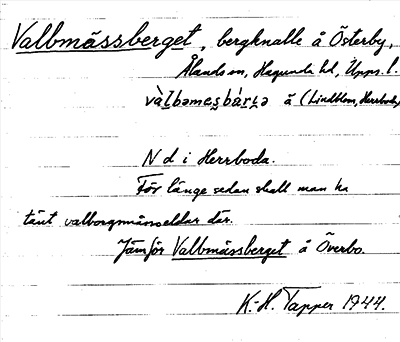 Valbmässberget, bergknalle å Österby,
Ålands sn, Hagunda hd, Upps. l.
vàl̥bəmes̬bár̥ɩ̥ə ä (Lindblom, Herrboda)
N d i Herrboda.
För länge sedan skall man ha
tänt valborgsmässoeldar där.
Jämför Valbmässberget å Överbo.
K.-H. Tapper 1944.